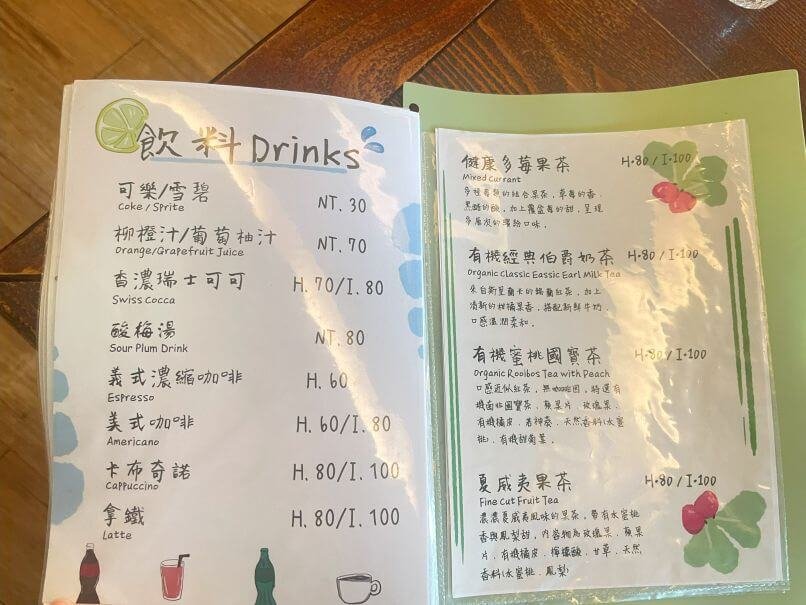 飲料 Drinks
可樂/雪碧 NT. 30
Coke / Sprite
柳橙汁/葡萄柚汁 NT. 70
Orange/Grapefruit Juice
香濃瑞士可可 H. 70/I. 80
Swiss Cocca
酸梅湯 NT. 80
Sour Plum Drink
義式濃縮咖啡 H. 60
Espresso
美式咖啡 H. 60/I. 80
Americano
卡布奇諾 H. 80/I. 100
Cappuccino
拿鐵 H. 80/I. 100
Latte
健康多莓果茶 H·80 / I·100
Mixed Currant
多種莓類的組合果茶，草莓的香、
黑醋的酸，加上覆盆莓的甜，呈現
多層次的繽紛口味。
有機經典伯爵奶茶 H·80 / I·100
Organic Classic Eassic Earl Milk Tea
來自斯里蘭卡的錫蘭紅茶，加上
清新的柑橘果香，搭配新鮮牛奶，
口感溫潤柔和。
有機蜜桃國寶茶 H·80 / I·100
Organic Rooibos Tea with Peach
口感近似紅茶，無咖啡因，特選有
機南非國寶茶、蘋果片、玫瑰果、
有機橘皮、洛神葵、天然香料(水蜜
桃)、有機甜菊葉。
夏威夷果茶 H·80 / I·100
Fine Cut Fruit Tea
濃濃夏威夷風味的果茶，帶有水蜜桃
香與鳳梨甜，內容物為玫瑰果、蘋果
片、有機橘皮、檸檬酸、甘草、天然
香料(水蜜桃、鳳梨)